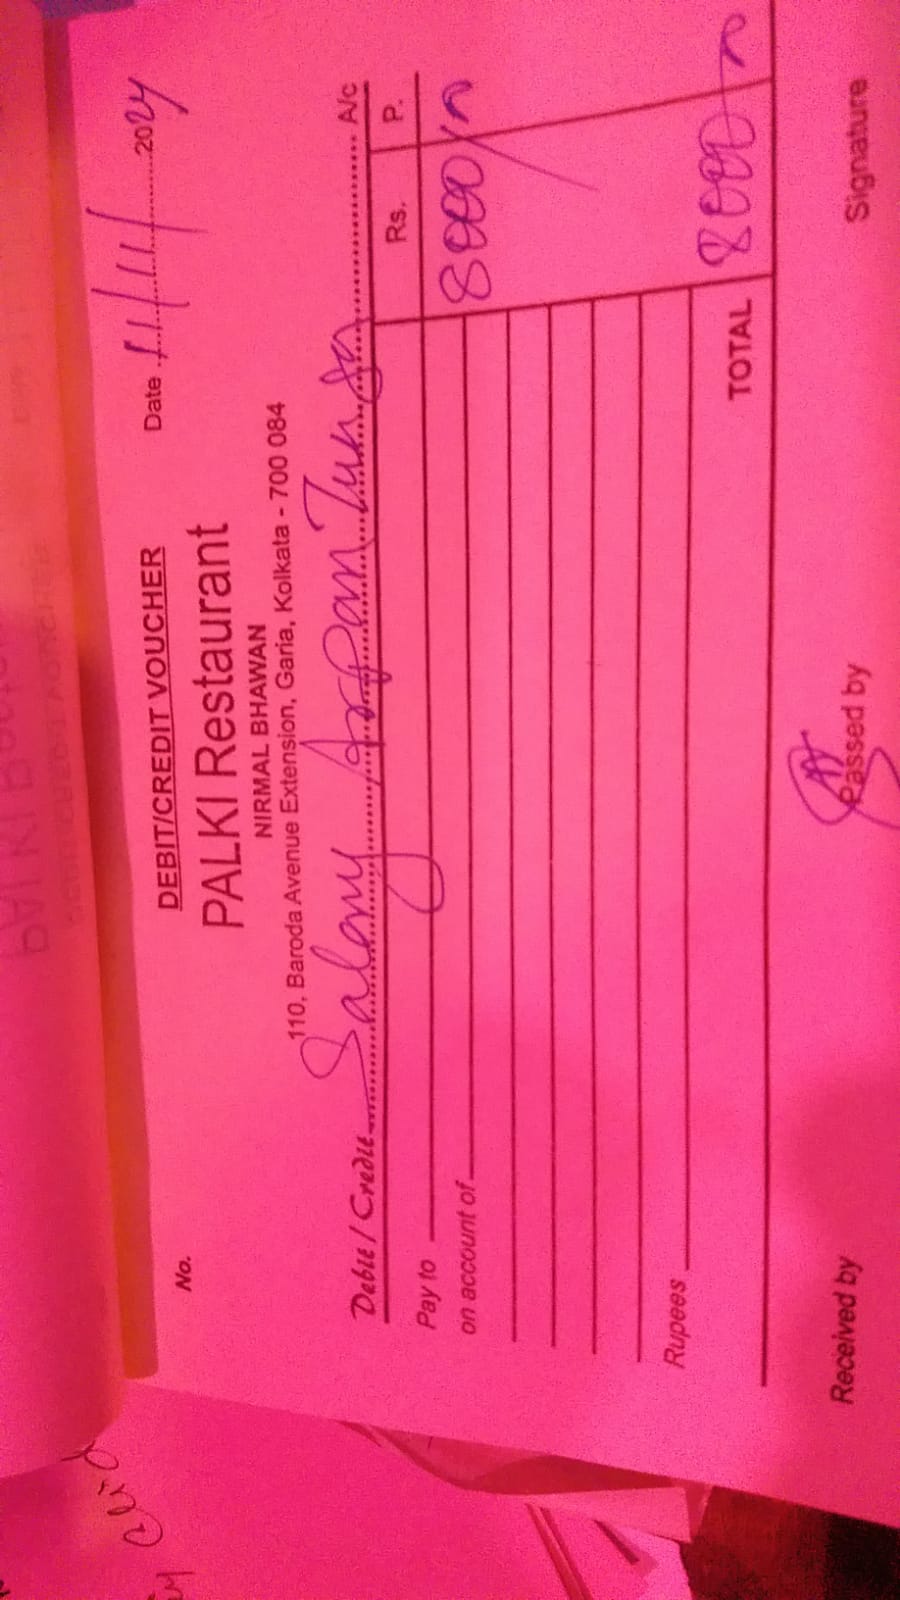 DEBIT/CREDIT VOUCHER
No. Date 11/11/2024
PALKI Restaurant
NIRMAL BHAWAN
110, Baroda Avenue Extension, Garia, Kolkata - 700 084
Debit / Credit Salary Arpan A/c
Rs. P.
Pay to 8000/
on account of
Rupees
TOTAL 8000
Received by Passed by Signature